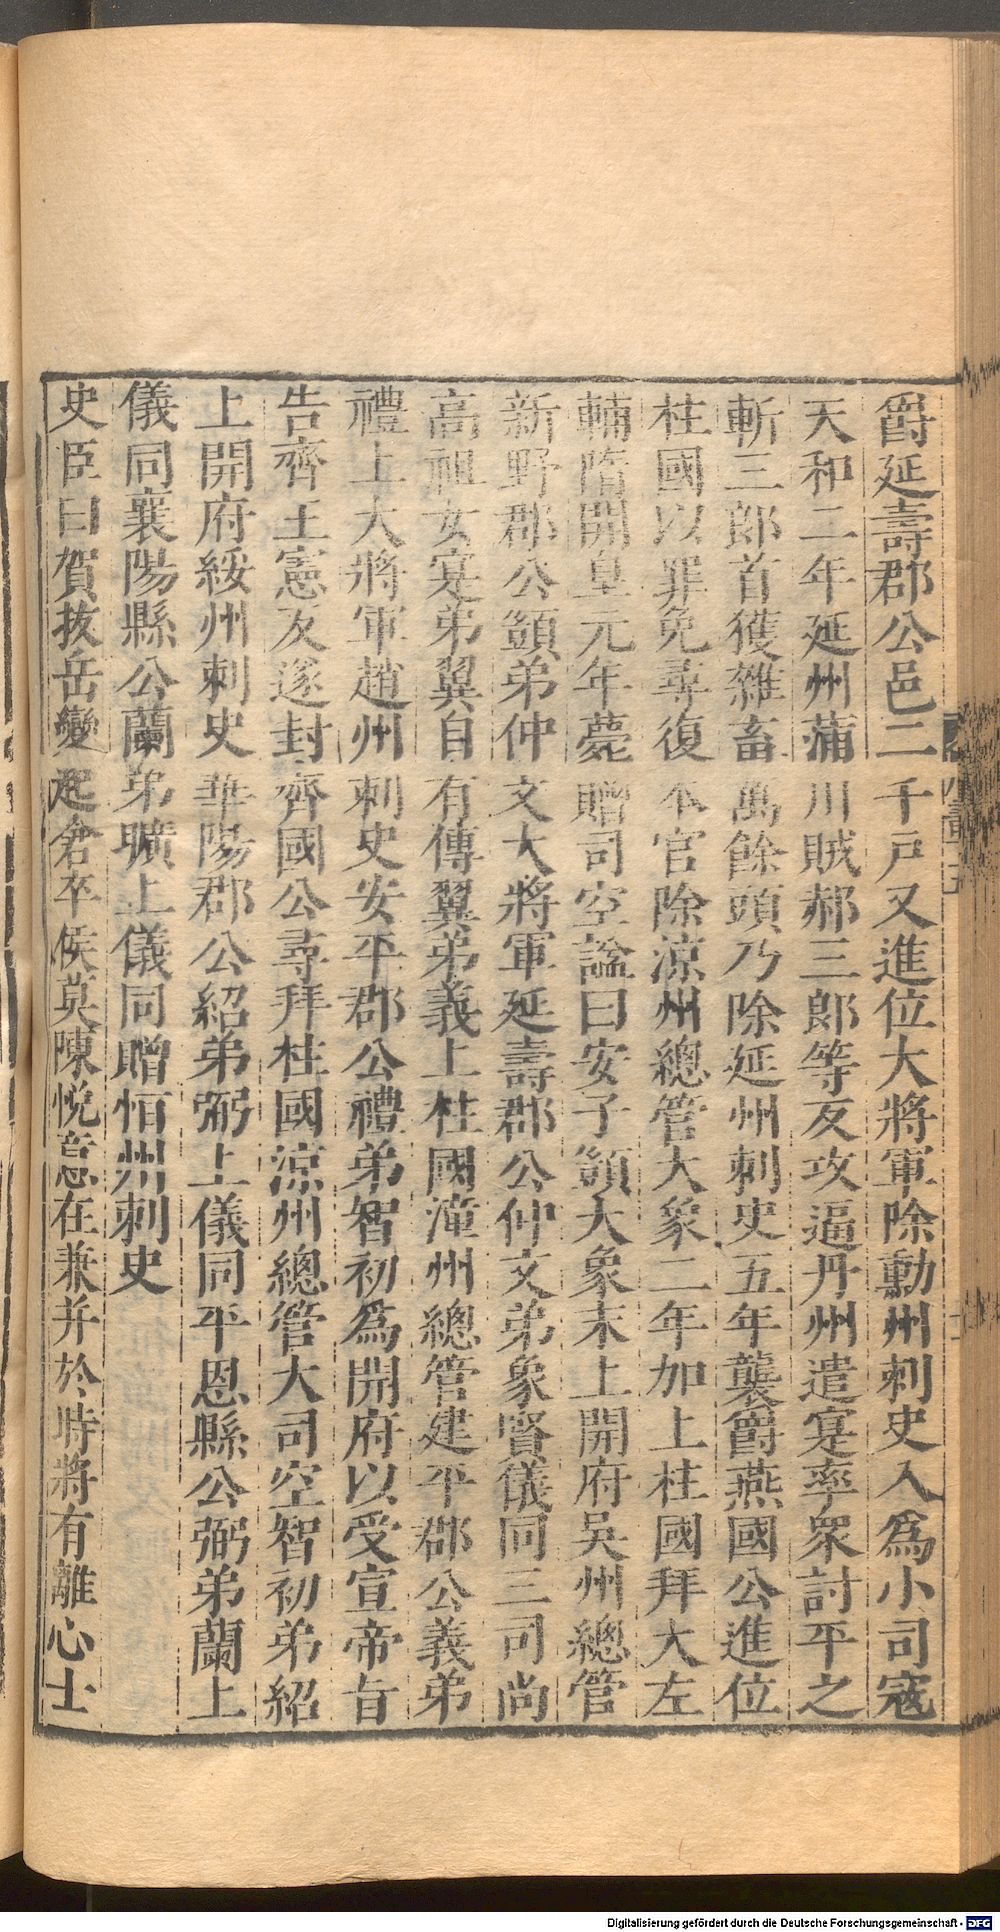 爵延壽郡公邑二千戸又進位大將軍除動州刺史入爲小司寇
天和二年延州蒲川賊郝三郎等反攻逼丹州遣寔率衆討平之
斬三郎首獲雜畜萬餘頭乃除延州刺史五年襲爵燕國公進位
柱國以罪免尋復本官除涼州總管大象二年加上柱國拜大左
輔隋開皇元年薨贈司空諡曰安子顗大象末上開府吳州總管
新野郡公顗弟仲文大將軍延壽郡公仲文弟象賢儀同三司尚
高祖女寔弟翼自有傳翼弟義上柱國潼州總管建平郡公義弟
禮上大將軍趙州刺史安平郡公禮弟智初爲開府以受宣帝旨
告齊王憲反遂封齊國公尋拜柱國涼州總管大司空智初弟紹
上開府綏州刺史華陽郡公紹弟弼上儀同平恩縣公弼弟蘭上
儀同襄陽縣公蘭弟曠上儀同贈恒州刺史
史臣曰賀拔岳變起倉卒侯莫陳悅意在兼并於時將有離心士
Digitalisierung gefördert durch die Deutsche Forschungsgemeinschaft - DFG